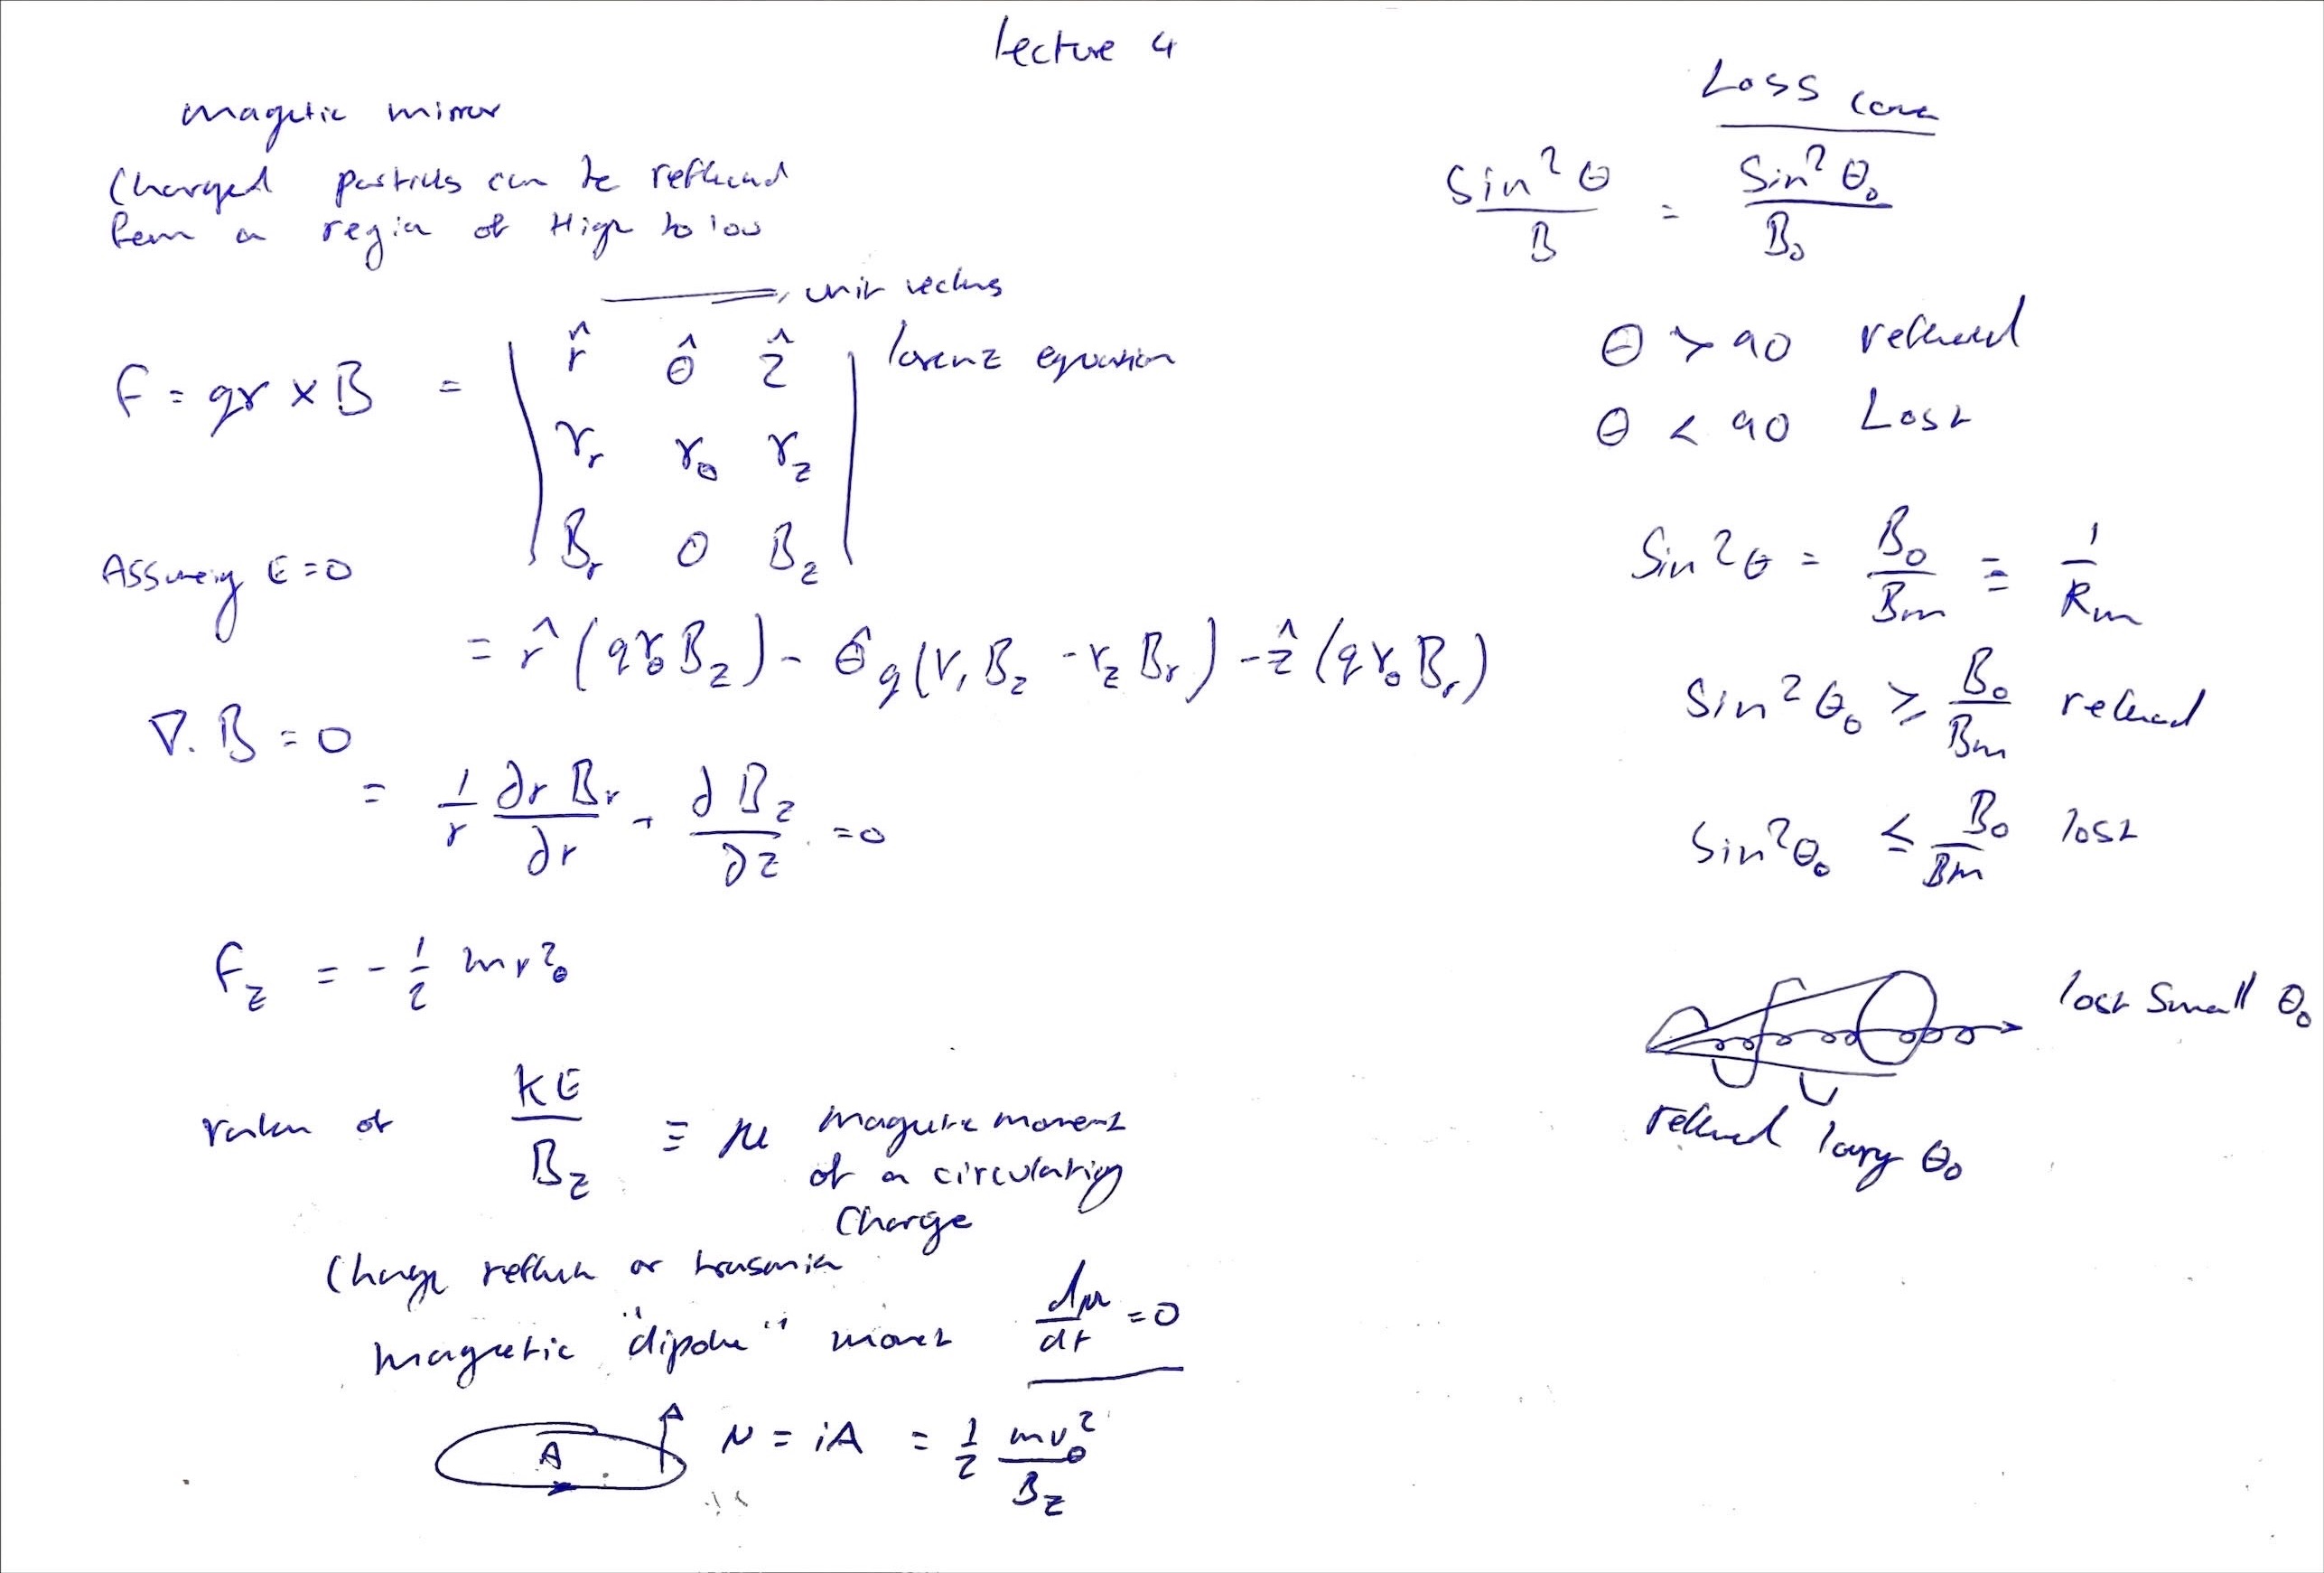 Lecture 4
magetic mirror
Charged particles can be reflected
from a region of High to low
unit vectors
F = qv × B = | r̂ θ̂ ẑ | lorenz equation
v_r v_θ v_z
B_r 0 B_z
Assuming E = 0
= r̂ (q v_θ B_z) - θ̂ q (v_r B_z - v_z B_r) - ẑ (q v_θ B_r)
∇. B = 0
= 1/r ∂r B_r/∂r + ∂B_z/∂z = 0
F_z = - 1/2 m v²_θ
of KE/B_z ≡ μ magnetic moment
of a circulating
charge
Charge or
magnetic "dipole" moment dμ/dt = 0
A μ = iA = 1/2 m v_θ²/B_z
Loss cone
Sin² θ/B = Sin² θ₀/B₀
θ > 90 reflected
θ < 90 Lost
Sin² θ = B₀/Bm ≡ 1/Rm
Sin² θ₀ ≥ B₀/Bm reflected
Sin² θ₀ ≤ B₀/Bm lost
lost small θ₀
reflected large θ₀